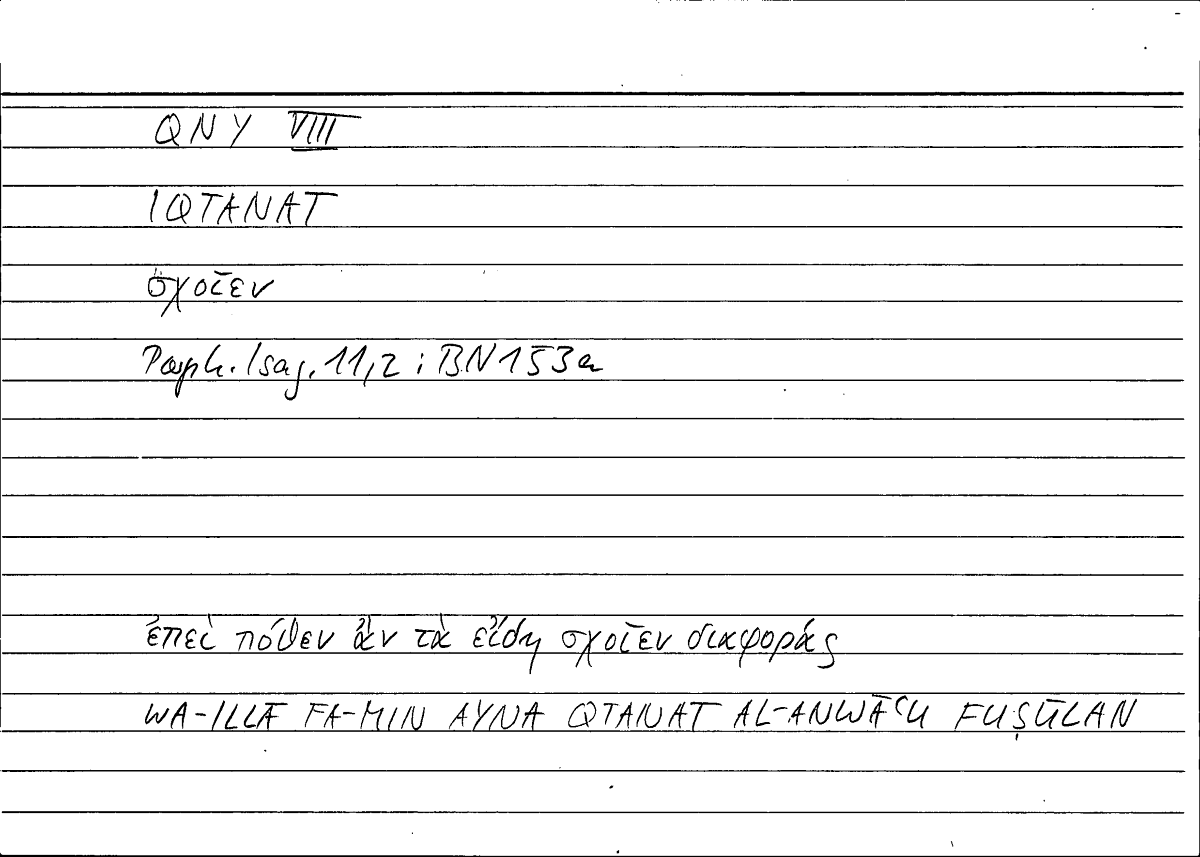 QNY VIII
IQTANAT
σχοῖεν
Porph. Isag. 11,2 ; BN 153a
ἐπεὶ πόθεν ἂν τὰ εἴδη σχοῖεν διαφοράς
WA-ILLĀ FA-MIN AYNA QTANAT AL-ANWĀʿU FUṢŪLAN